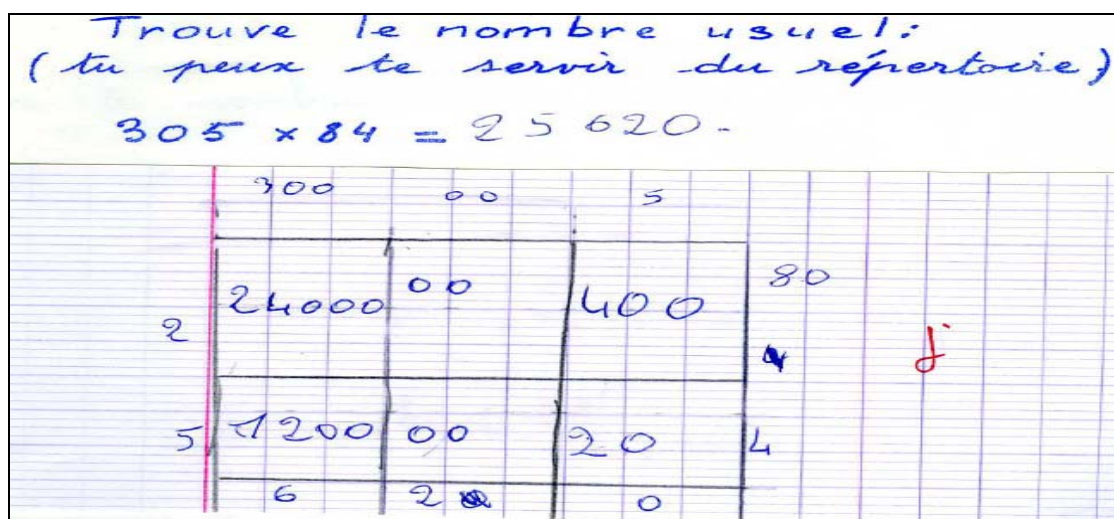 Trouve le nombre usuel:
(tu peux te servir du répertoire)
305 × 84 = 25 620.
300 00 5
24000 00 400 80
2
5 1200 00 20 4
6 2 0